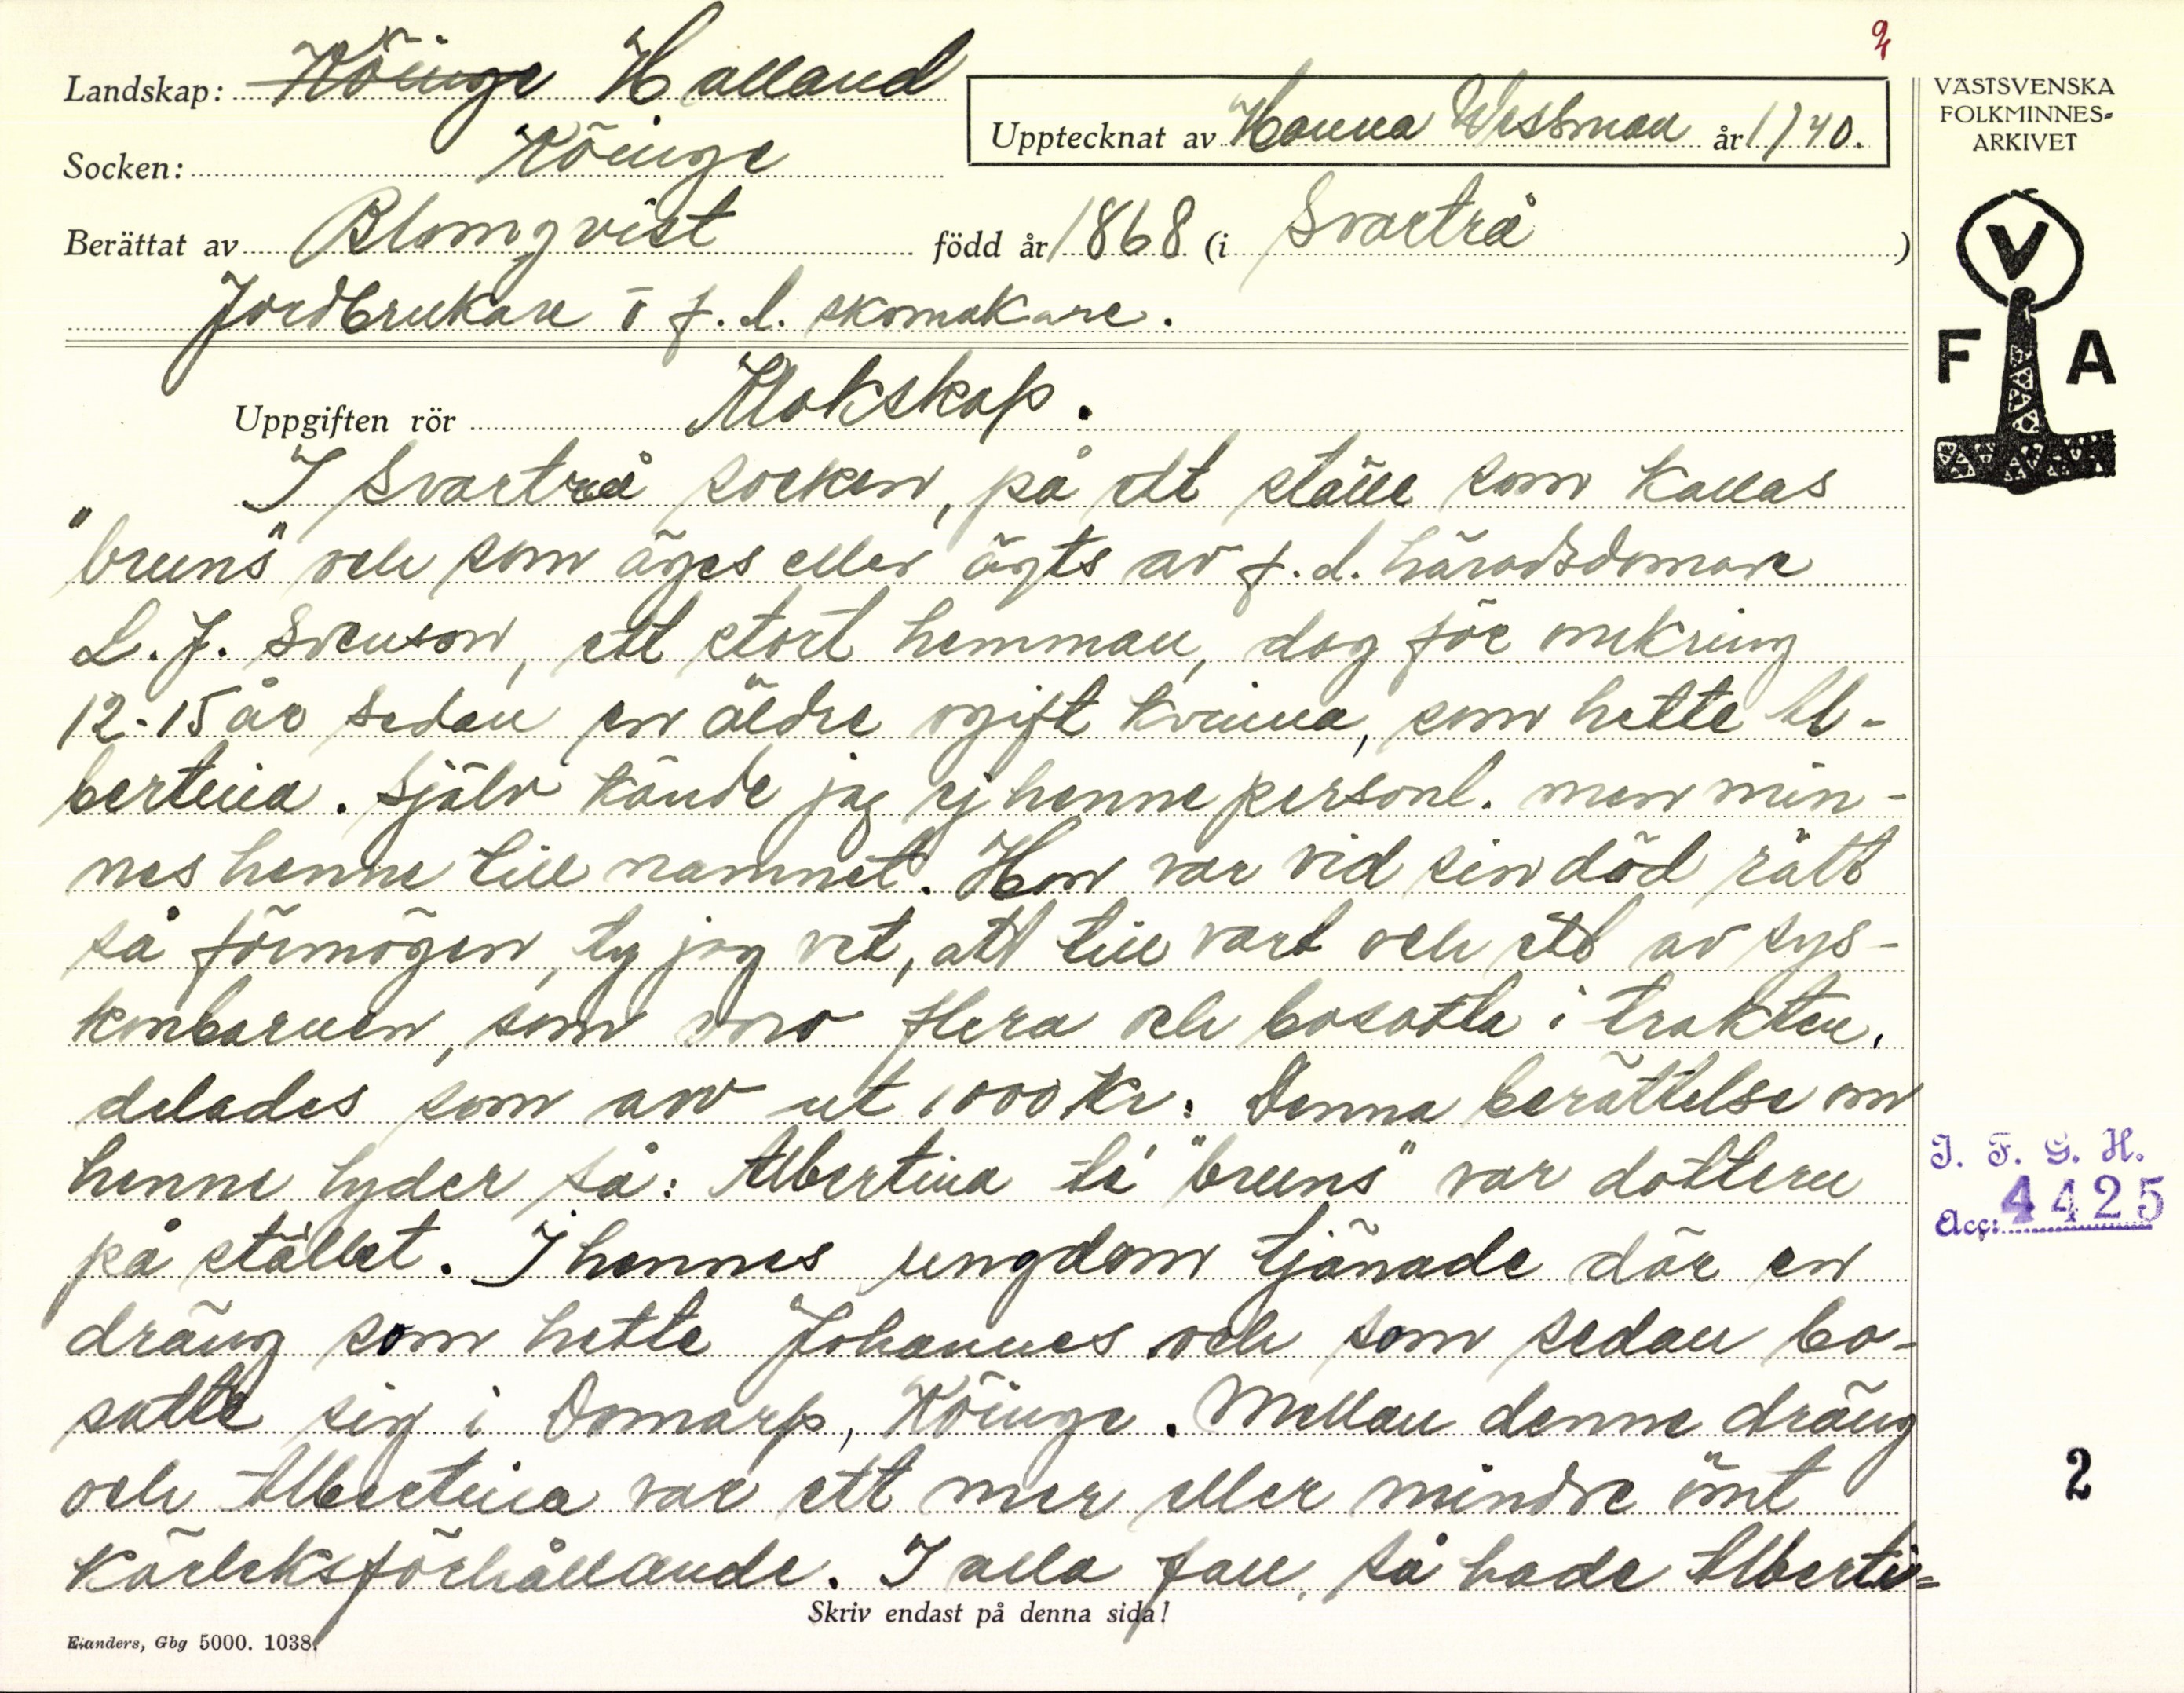 2
Landskap: Köinge Halland
Upptecknat av Hanna Wessman år 1940.
Socken: Köinge
Berättat av Blomqvist född år 1868 (i Svartrå)
Jordbrukare o f.d. skomakare.
Uppgiften rör Klokskap.
I Svartrå socken, på ett ställe som kallas
"bruns" och som äges eller ägts av f.d. häradsdomare
L.J. Svenson, ett stort hemman, dog för omkring
12-15 år sedan en äldre ogift kvinna, som hette Al-
bertina. Själv kände jag ej henne personl. men min-
nes henne till namnet. Hon var vid sin död rätt
så förmögen, ty jag vet, att till vart och ett av sys-
konbarnen, som voro flera och bosatta i trakten,
delades som arv ut 1000 Kr: Denna berättelse om
henne lyder så: Albertina té "bruns" var dottern
på stället. I hennes ungdom tjänade där en
dräng som hette Johannes och som sedan bo-
satte sig i Domarp, Köinge. Mellan denne dräng
och Albertina var ett mer eller mindre ömt
kärleksförhållande. I alla fall, så hade Alberti=
Skriv endast på denna sida!
Elanders, Gbg 5000. 1038.
VÄSTSVENSKA
FOLKMINNES=
ARKIVET
V
F A
I. F. G. H.
Acc: 4425
2